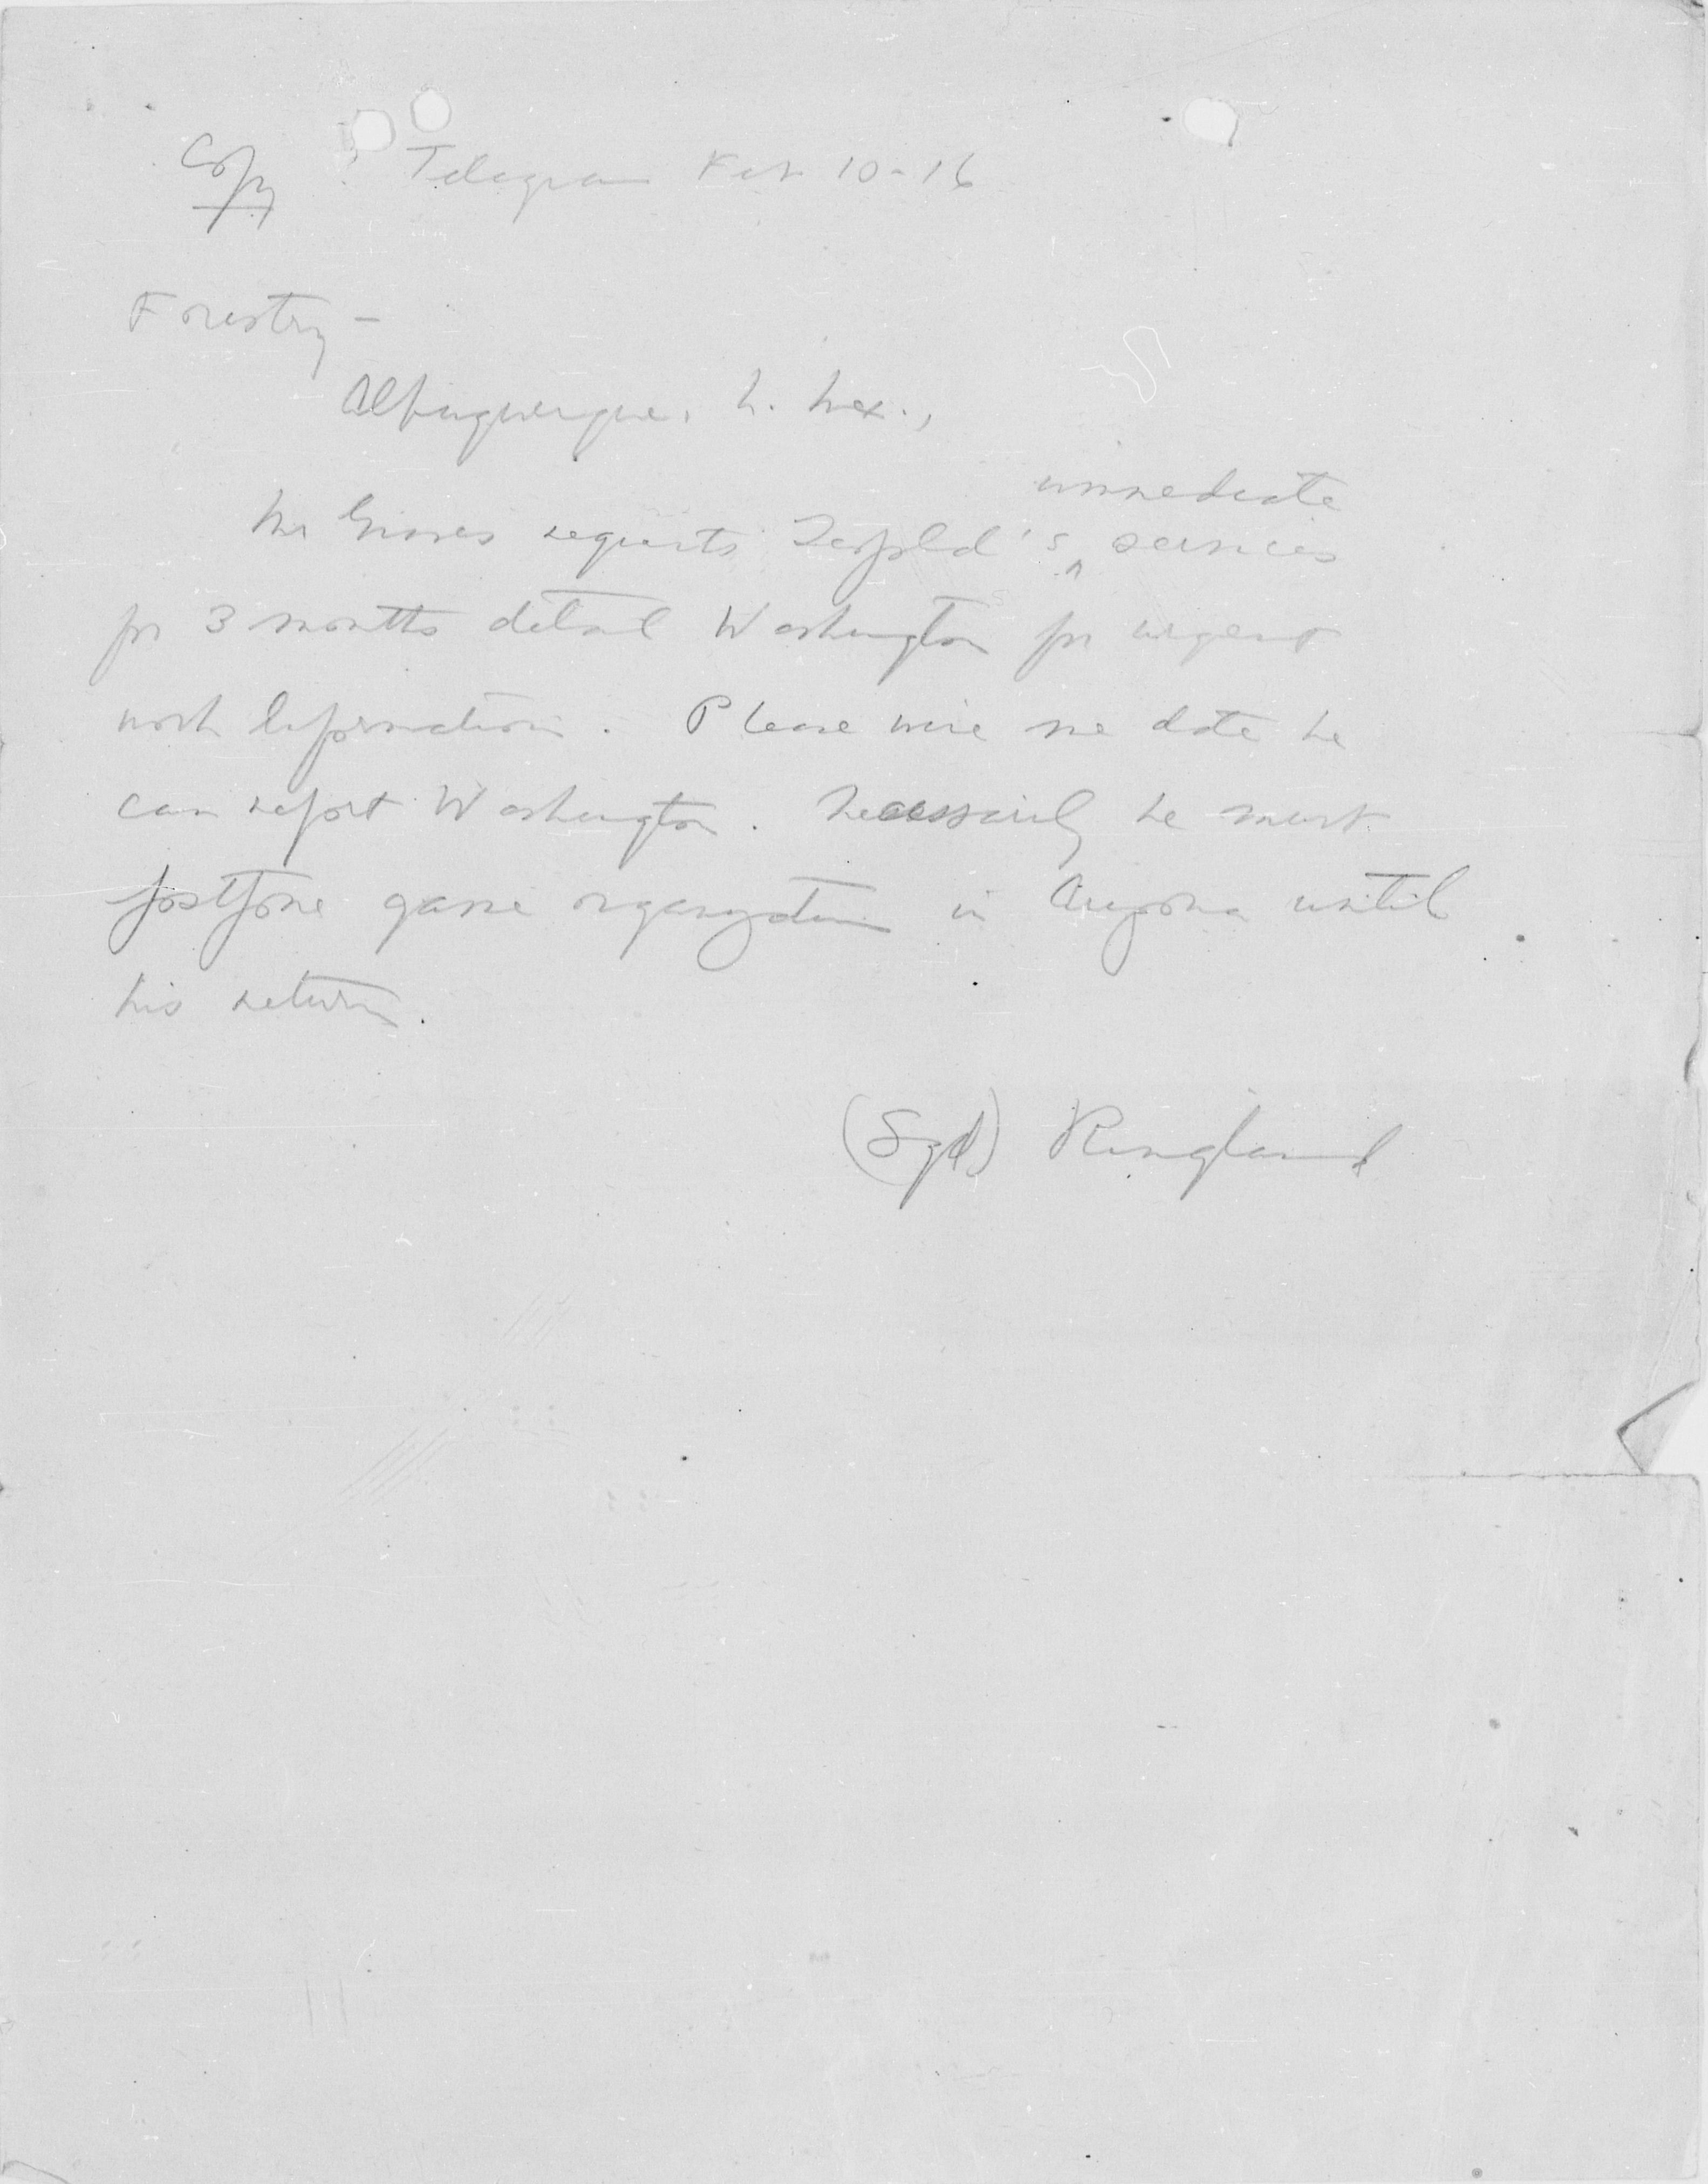 Copy Telegram Feb 10-16
Forestry -
Albuquerque, N. Mex.,
immediate
Mr Graves requests Leopold's ^ services
for 3 months detail Washington for urgent
work Information. Please wire me date he
can report Washington. Necessarily he must
postpone game organization in Arizona until
his return.
(Sgd) Ringland